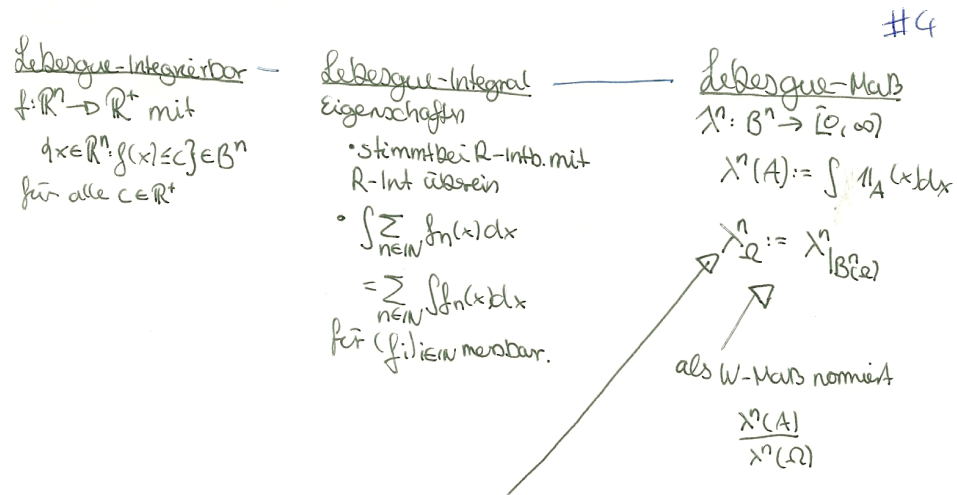 #4
Lebesgue-Integrierbar
f: ℝⁿ → ℝ⁺ mit
{x∈ℝⁿ: f(x) ≤ c} ∈ Bⁿ
für alle c∈ℝ⁺
Lebesgue-Integral
Eigenschaften
• stimmt bei R-Intb. mit
R-Int überein
• ∫ ∑_{n∈ℕ} fₙ(x) dx
= ∑_{n∈ℕ} ∫ fₙ(x) dx
für (fᵢ)_{i∈ℕ} messbar.
Lebesgue-Maß
λⁿ: Bⁿ → [0, ∞)
λⁿ(A) := ∫ 𝟙_A (x) dx
λⁿ_Ω := λⁿ|_{Bⁿ(Ω)}
als W-Maß normiert
λⁿ(A)
λⁿ(Ω)